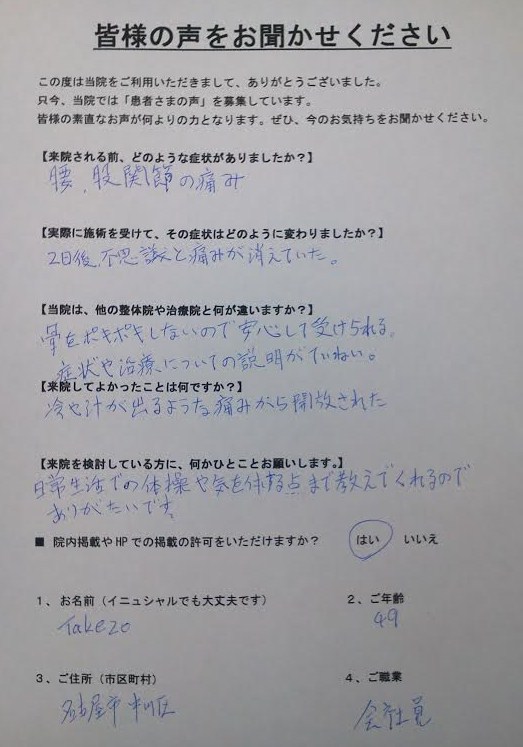 皆様の声をお聞かせください
この度は当院をご利用いただきまして、ありがとうございました。
只今、当院では「患者さまの声」を募集しています。
皆様の素直なお声が何よりの力となります。ぜひ、今のお気持ちをお聞かせください。
【来院される前、どのような症状がありましたか？】
腰、股関節の痛み
【実際に施術を受けて、その症状はどのように変わりましたか？】
2日後、不思議と痛みが消えていた。
【当院は、他の整体院や治療院と何が違いますか？】
骨をポキポキしないので安心して受けられる。
症状や治療についての説明がていねい。
【来院してよかったことは何ですか？】
冷や汁が出るような痛みから開放された
【来院を検討している方に、何かひとことお願いします。】
日常生活での体操や気を付ける点まで教えてくれるので
ありがたいです。
■ 院内掲載やHPでの掲載の許可をいただけますか？ はい いいえ
1、お名前（イニュシャルでも大丈夫です） 2、ご年齢
Takezo 49
3、ご住所（市区町村） 4、ご職業
名古屋市中川区 会社員